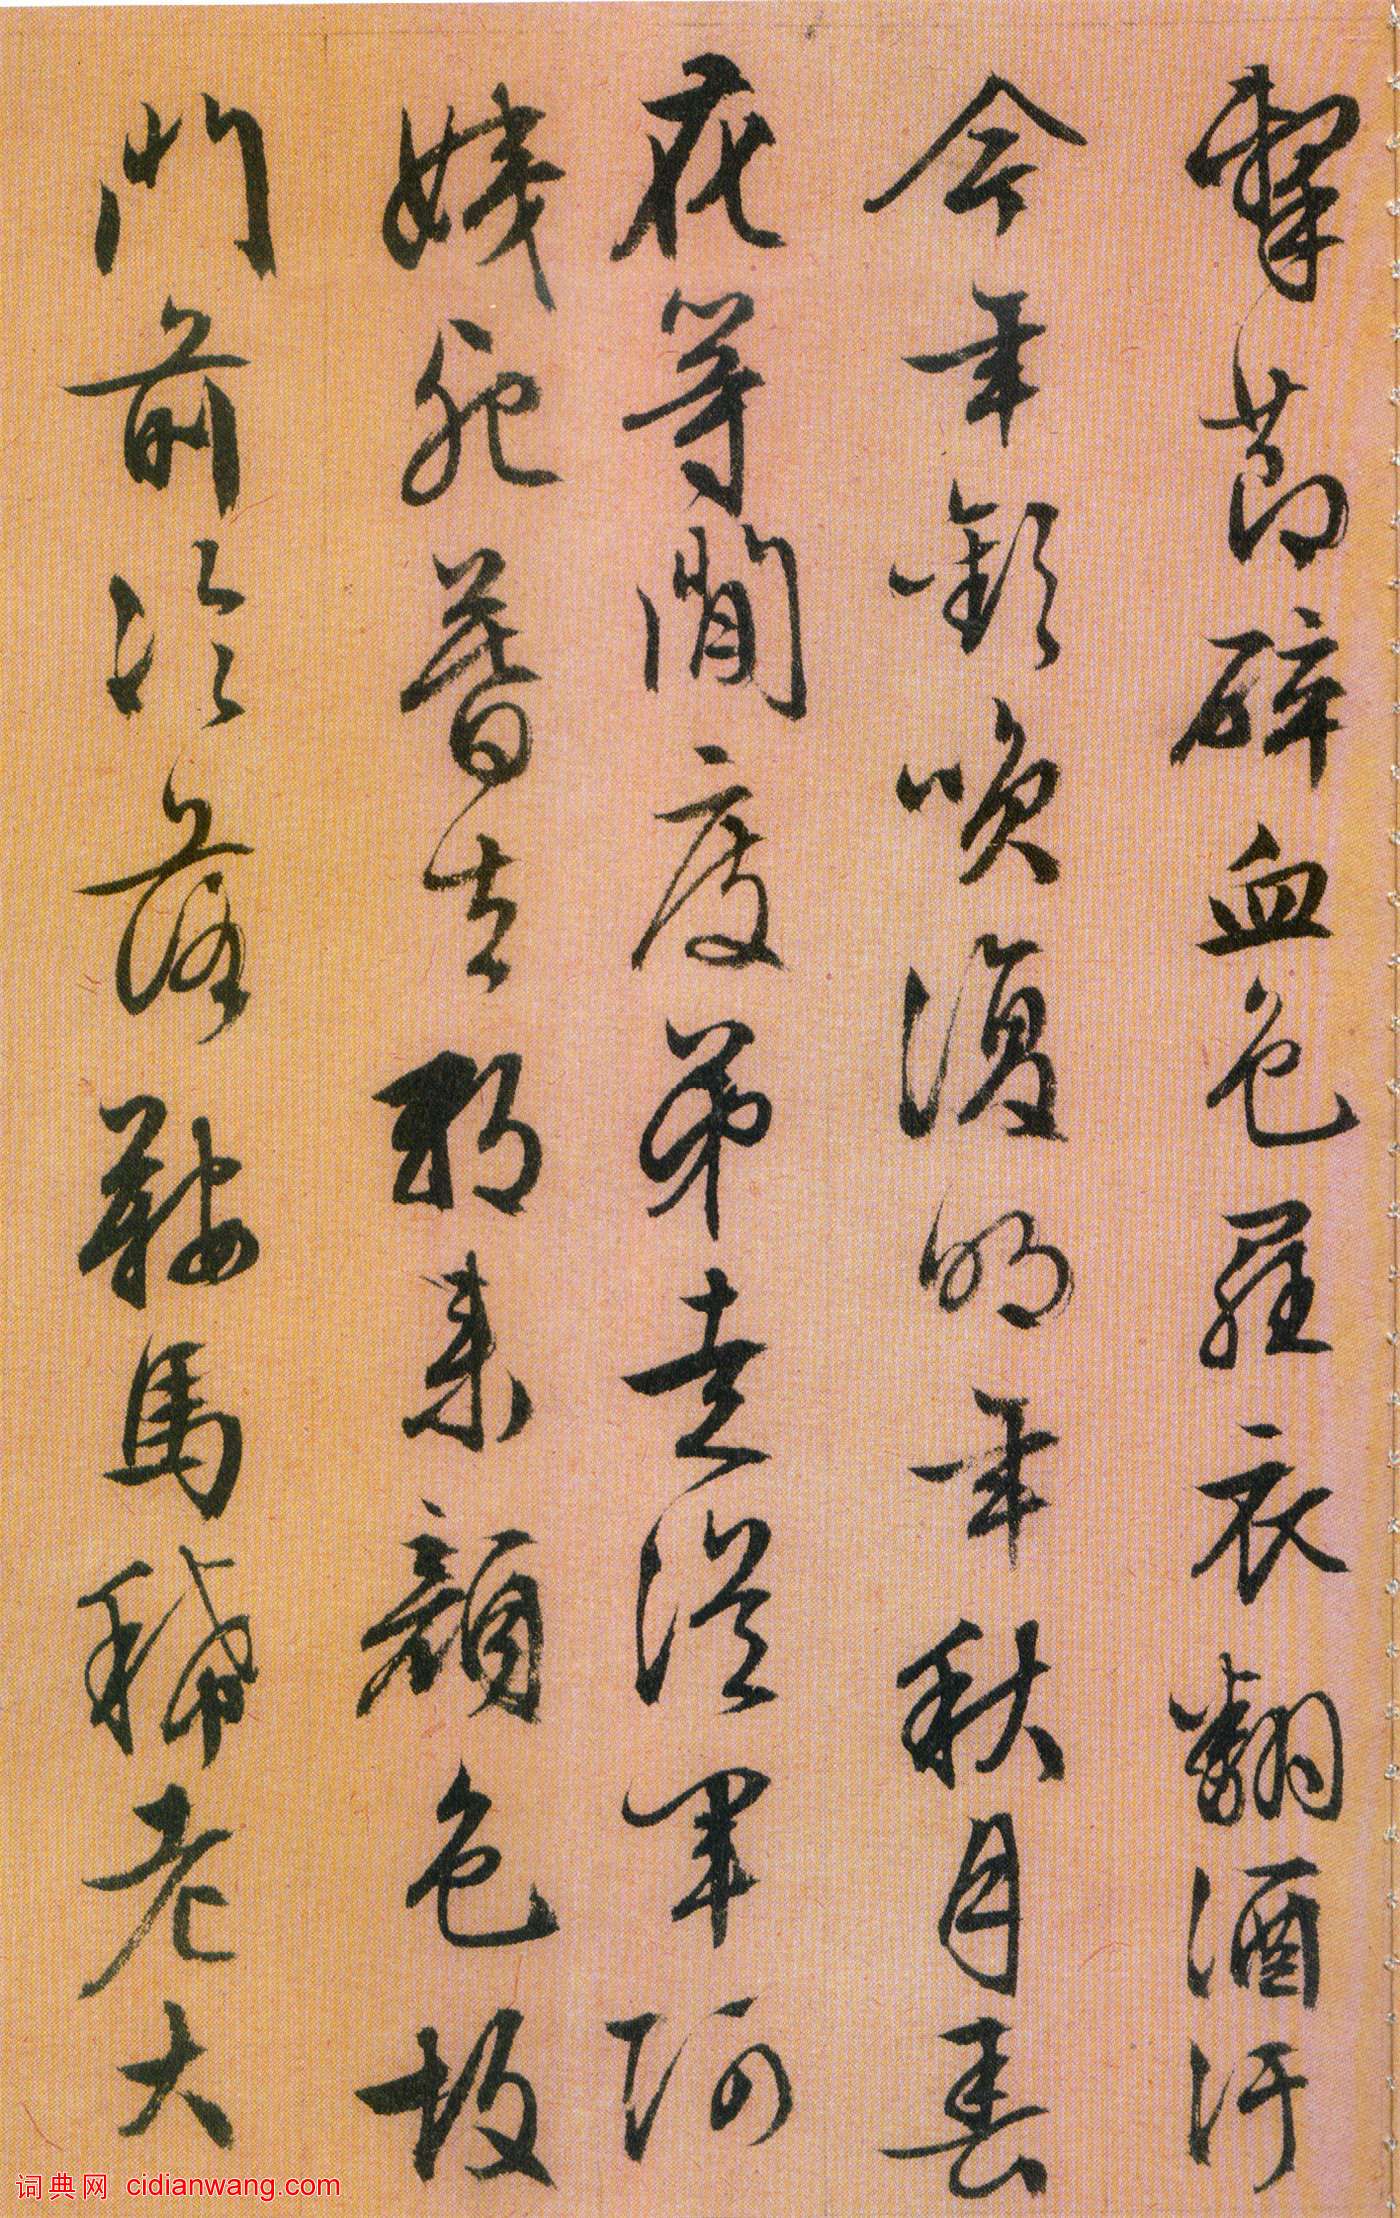 擊節碎血色羅衣翻酒汙
今年歡咲復明年秋月春
花等閒度弟走從軍阿
姨死暮去朝來顏色故
門前冷落鞍馬稀老大
词典网 cidianwang.com